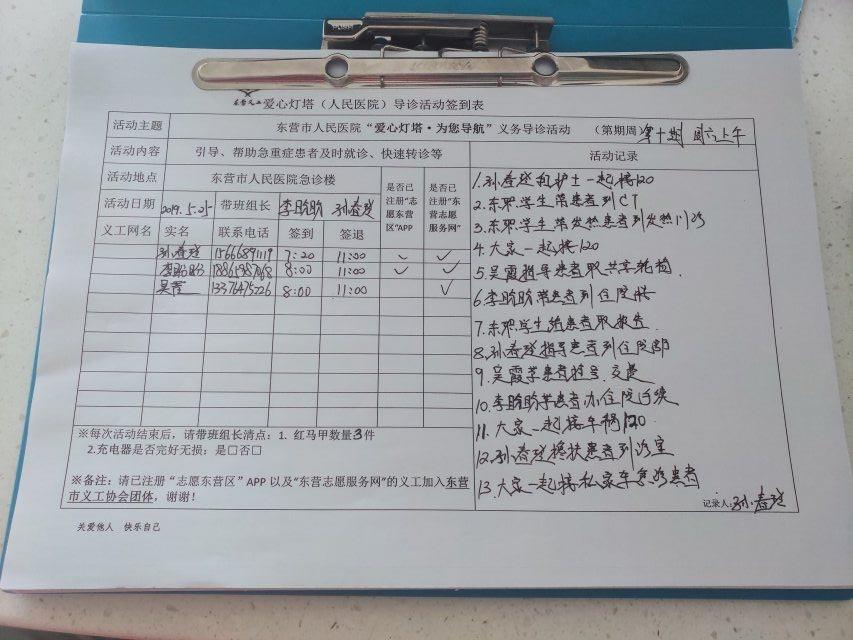 东营义工 爱心灯塔（人民医院）导诊活动签到表
活动主题 东营市人民医院“爱心灯塔·为您导航”义务导诊活动 （第期周） 第十期 周六上午
活动内容 引导、帮助急重症患者及时就诊、快速转诊等 活动记录
活动地点 东营市人民医院急诊楼 是否已注册“志愿东营区”APP 是否已注册“东营志愿服务网”
活动日期 2019.5.25 带班组长 李盼盼 孙春廷
义工网名 实名 联系电话 签到 签退
孙春廷 15666891119 7:20 11:00 ✓ ✓
李盼盼 8:00 11:00 ✓ ✓
吴霞 13376475226 8:00 11:00 ✓
1.孙春廷和护士一起接120
2.东职学生带患者到CT
3.东职学生带发热患者到发热门诊
4.大家一起接120
5.吴霞指导患者取共享轮椅.
6.李盼盼带患者到住院
7.东职学生给患者取报告.
8.孙春廷指导患者到住院部
9.吴霞带患者挂号.交费
10.李盼盼带患者办住院手续
11.大家一起接车祸120
12.孙春廷搀扶患者到诊室
13.大家一起接私家车急诊患者
记录人:孙春廷
※每次活动结束后，请带班组长清点：1. 红马甲数量3件
2.充电器是否完好无损：是□否□
※备注：请已注册“志愿东营区”APP 以及“东营志愿服务网”的义工加入东营
市义工协会团体，谢谢！
关爱他人 快乐自己